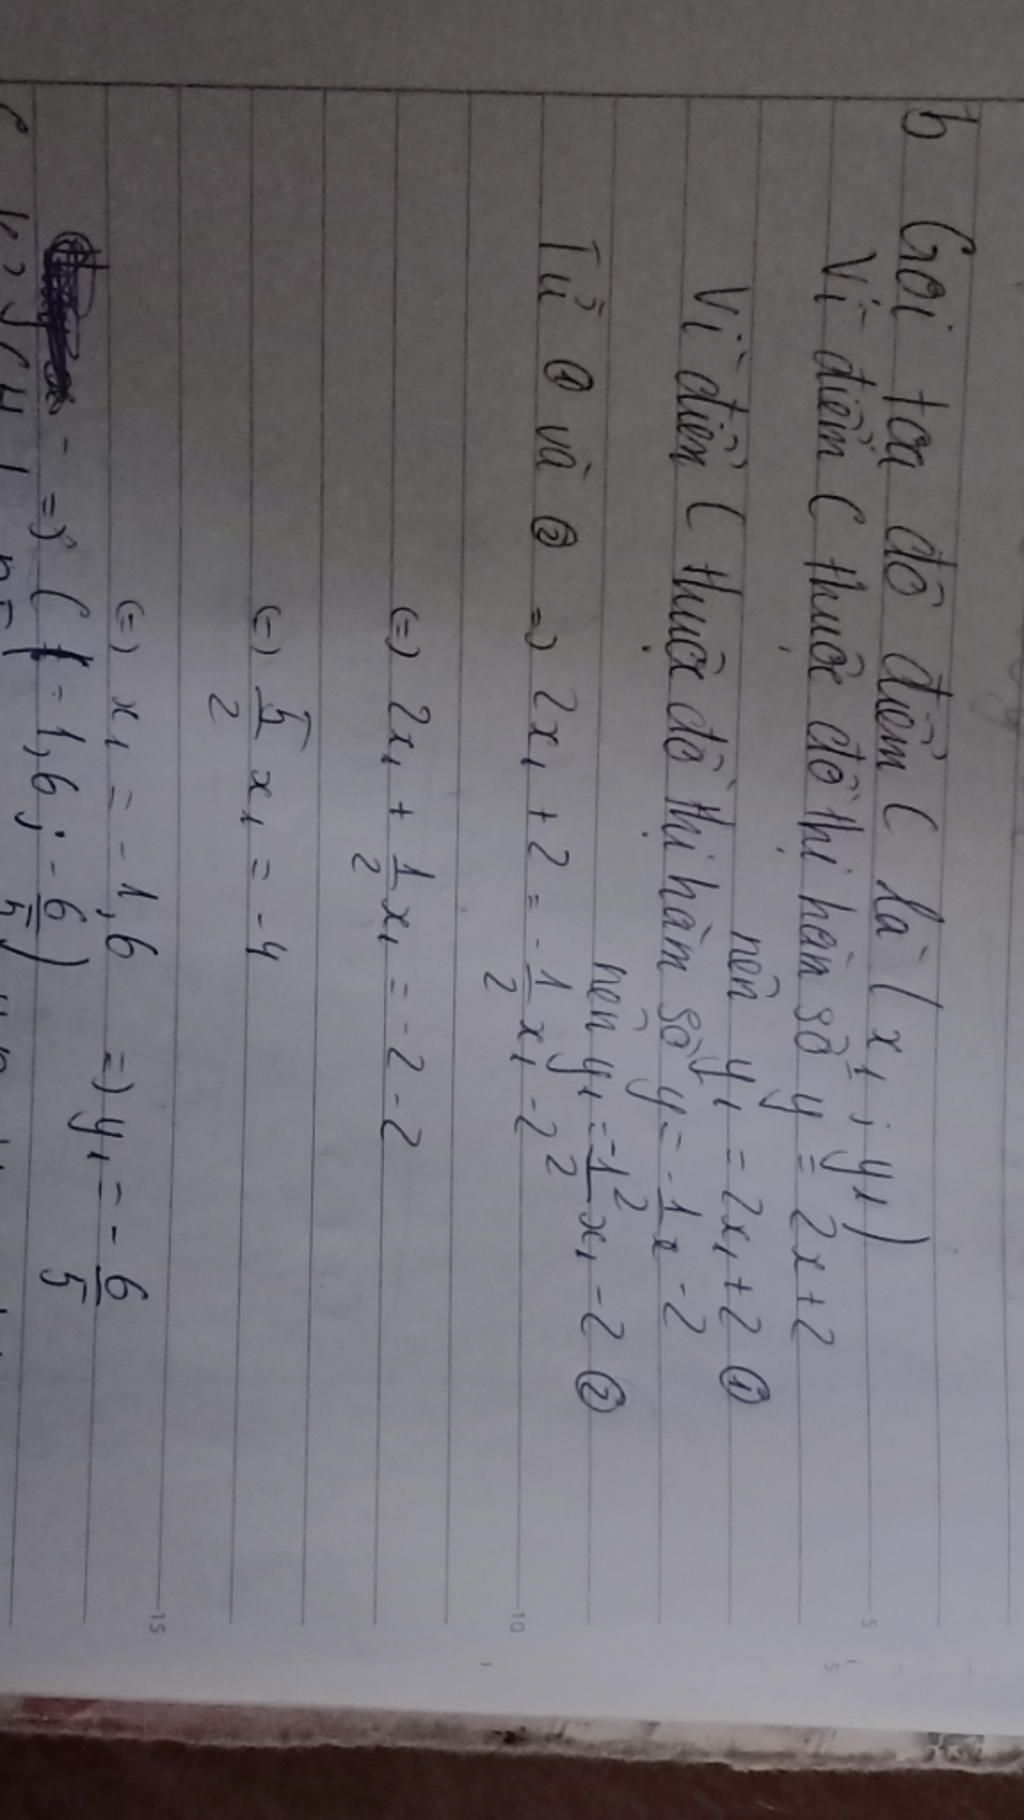 b Gọi toạ độ điểm C là (x₁ ; y₁)
Vì điểm C thuộc đồ thị hàm số y = 2x + 2
nên y₁ = 2x₁ + 2 ①
Vì điểm C thuộc đồ thị hàm số y = -1/2 x - 2
nên y₁ = -1/2 x₁ - 2 ②
Từ ① và ② => 2x₁ + 2 = -1/2 x₁ - 2
(=) 2x₁ + 1/2 x₁ = -2 - 2
(=) 5/2 x₁ = -4
(=) x₁ = -1,6 => y₁ = -6/5
=> C (-1,6 ; -6/5)
5
5
10
15